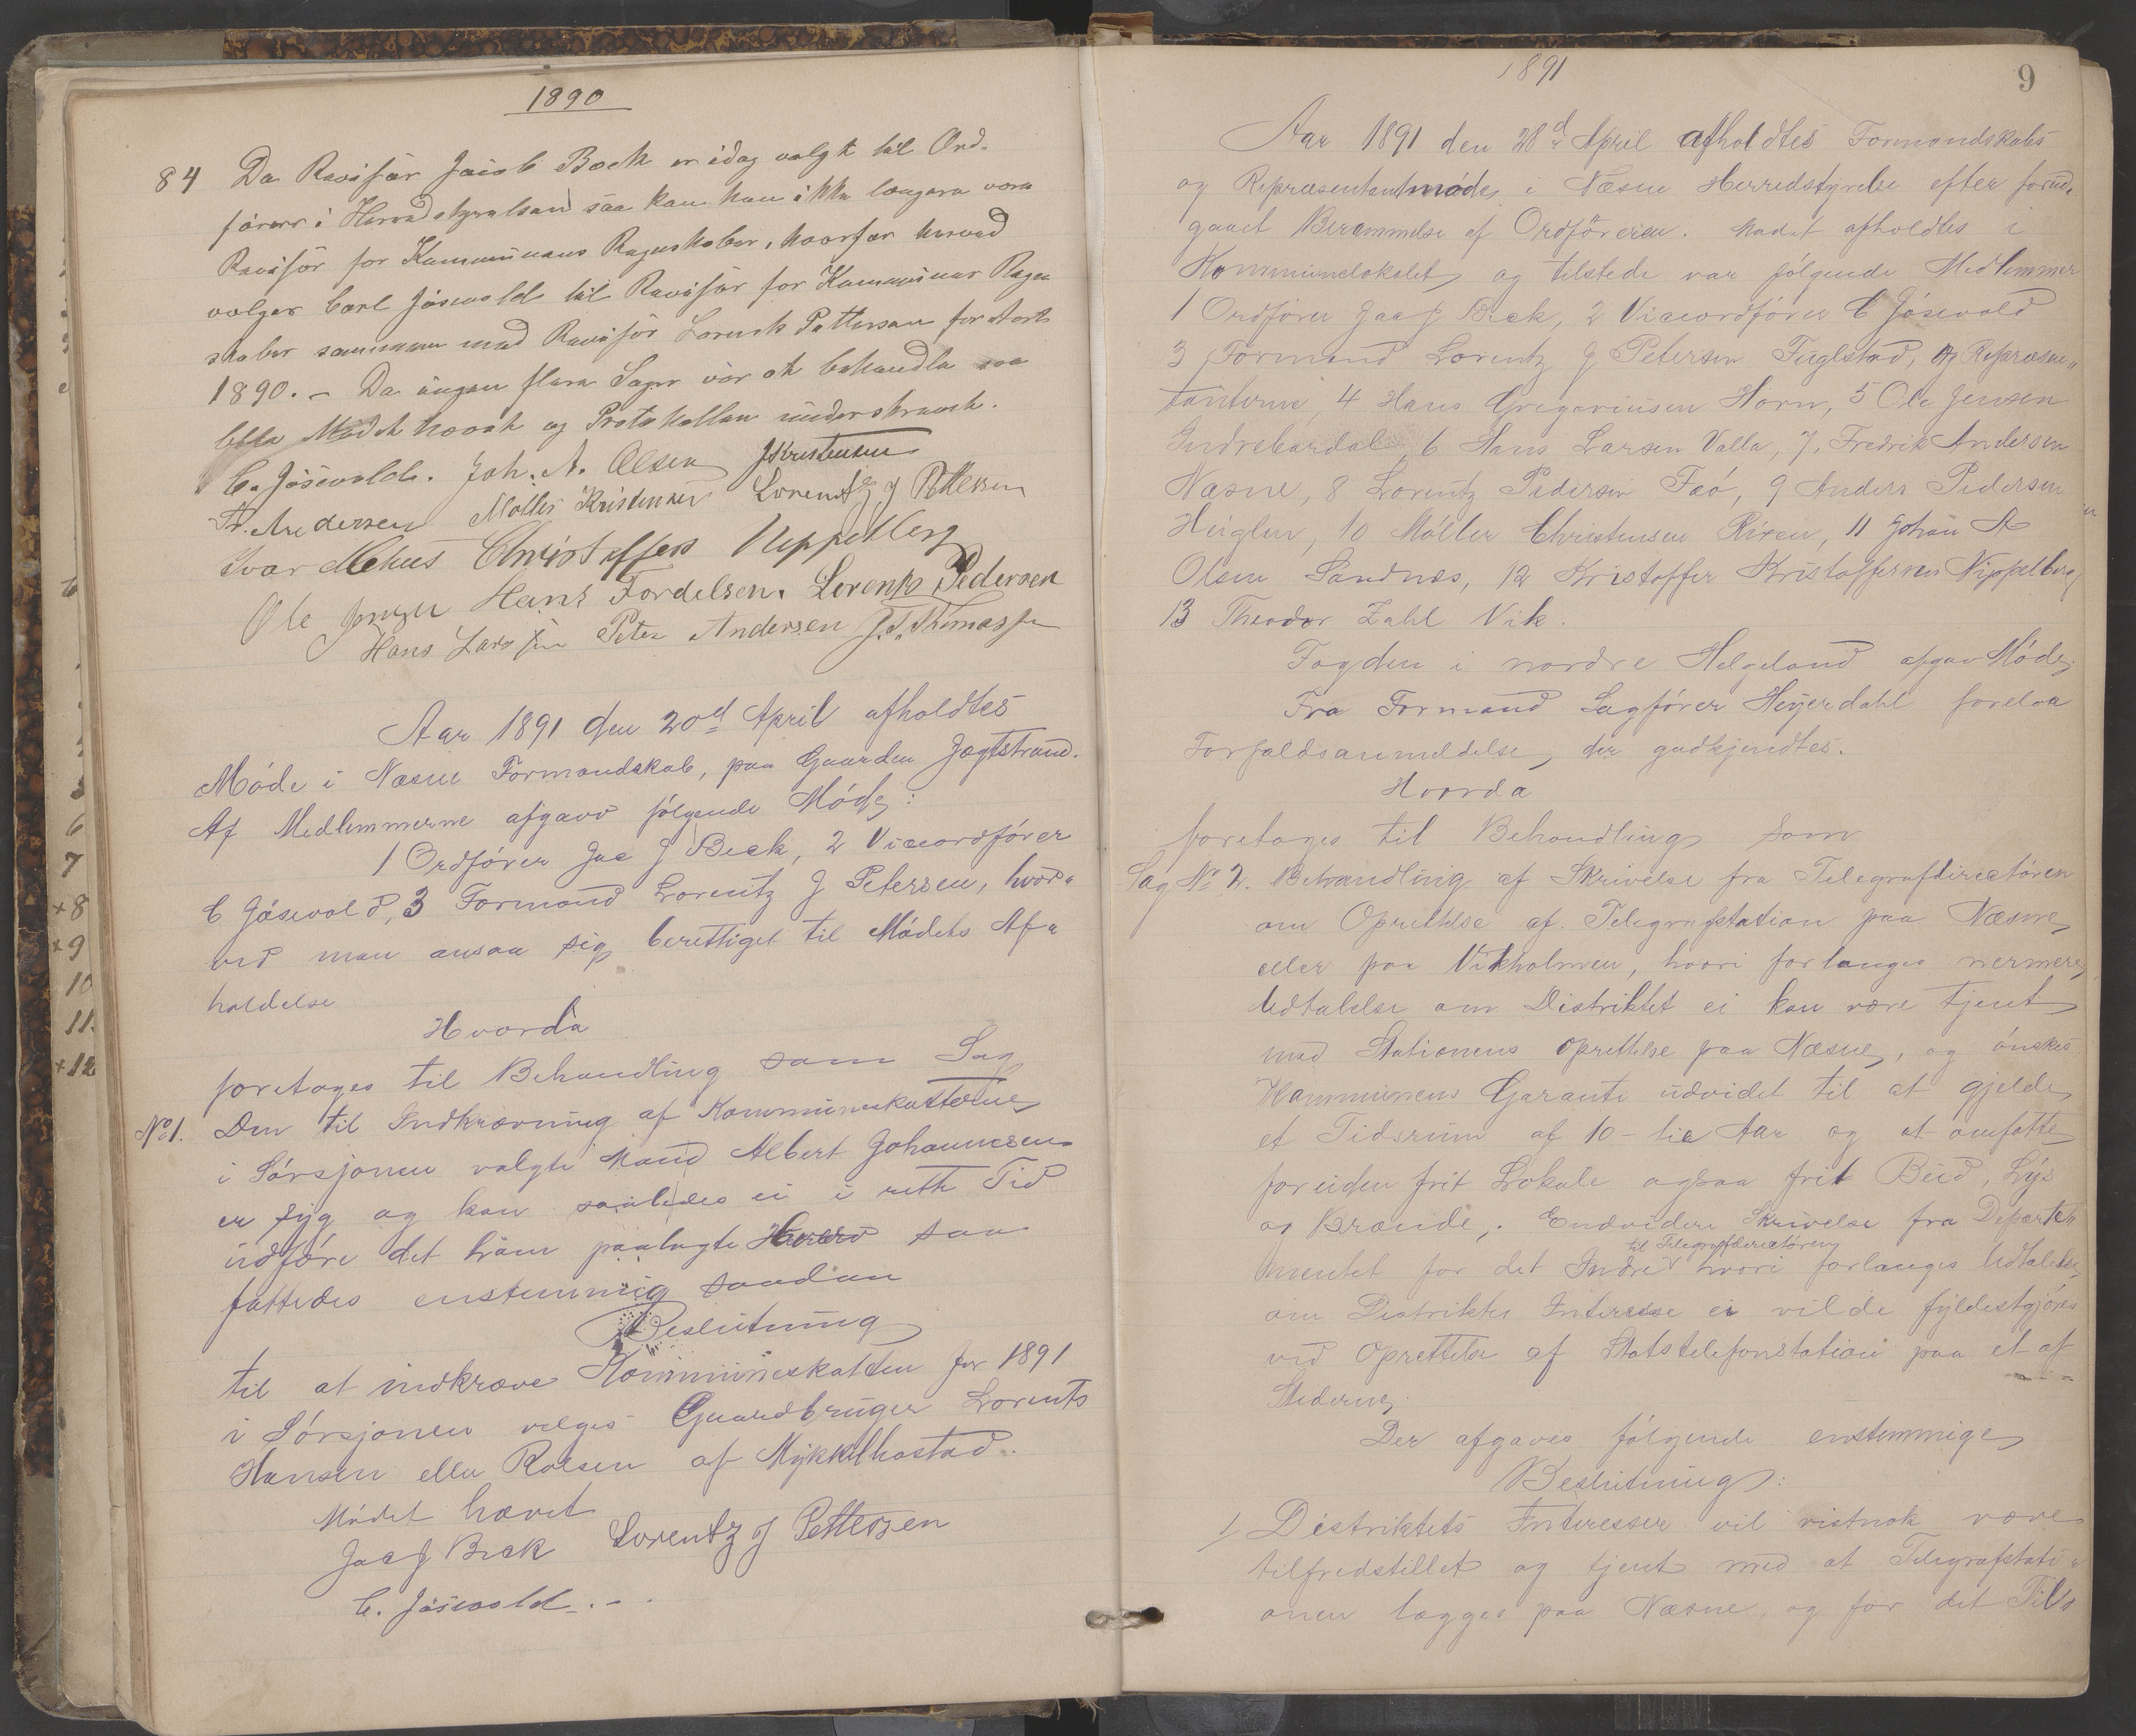 1890
84 Da Revisør Jacob Beck er idag valgt til Ord-
fører i Herredstyrelsen saa kan han ikke længere være
Revisør for Kommunens Regnskaber, hvorfor herved
vælges Carl Jøsevold til Revisør for Kommunens Regn
skaber sammen med Revisør Lorents Pettersen for Aaret
1890. – Da ingen flere Sager var at behandle saa
blev Mødet hævet og Protokollen underskrevet.
C. Jøsevold. Joh. A. Olsen J Kristensen
Fr. Andersen Møller Kristensen Lorentz J Pettersen
Ivar Mehus Christoffers Neppelberg
Ole Jensen Hans Fordelsen. Lorents Pedersen
Hans Larssen Peter Andersen J. T. Thomassen
Aar 1891 den 20de April afholdtes
Møde i Næsne Formandskab, paa Gaarden Jægtstrand.
Af Medlemmerne afgave følgende Møde:
1 Ordfører Jac J Beck, 2 Viceordfører
C Jøsevold, 3 Formand Lorentz J Petersen, hvor-
ved man ansaa sig berettiget til Mødets Af-
holdelse
Hvorda
foretages til Behandling som Sag
No 1. Den til Indkrævning af Kommuneskatterne
i Sørsjonen valgte Mand Albert Johannesen
er syg og kan saaledes ei i rette Tid
udføre det ham paalagte Hverv saa
fattedes enstemmig saadan
Beslutning
til at indkræve Kommuneskatten for 1891
i Sørsjonen vælges Gaardbruger Lorents
Hansen eller Roesen af Mykkelbostad.
Mødet hævet
Jac J Beck Lorentz J Pettersen
C. Jøsevold. –
1891
9
Aar 1891 den 28de April afholdtes Formandskabs
og Repræsentantmøde i Næsne Herredstyrelse efter forud-
gaaet Berammelse af Ordføreren. Mødet afholdtes i
Kommunelokalet og tilstede var følgende Medlemmer
1 Ordfører Jac J Beck, 2 Viceordfører C Jøsevold
3 Formand Lorentz J Petersen Fuglstad, og Repræsen-
tanterne 4 Hans Gregoriusen Horn, 5 Ole Jensen
Indrebardal, 6 Hans Larsen Valla, 7. Fredrik Andersen
Næsne, 8 Lorentz Pedersen Feó, 9 Anders Pedersen
Heiglen, 10 Møller Christensen Risen, 11 Johan A
Olsen Sandnes, 12 Kristoffer Kristoffersen Nippelberg
13 Theodor Zahl Vik.
Fogden i nordre Helgeland afgav Møde,
Fra Formand Sagfører Heyerdahl forelaa
Forfaldsanmeldelse, der godkjendtes.
Hvorda
foretages til Behandling som
Sag No 2. Behandling af Skrivelse fra Telegrafdirectøren
om Oprettelse af Telegrafstation paa Næsne,
eller paa Vikholmen, hvori forlanges nermere
Udtalelse om Distriktet ei kan være tjent
med Stationens oprettelse paa Næsne, og ønskes
Kommunens Garanti udvidet til at gjelde
et Tidsrum af 10 – tie Aar og at omfatte
foruden frit Lokale ogsaa frit Bud, Lys
og Brænde,. Endvidere Skrivelse fra Departe-
mentet for det Indre til Telegrafdirectøren hvori forlanges Udtalelse
om Distrikts Interesse ei vilde fyldestgjøres
ved Oprettelse af Statstelefonstation paa et af
Stederne.
Der afgaves følgende enstemmige
Beslutning:
1/ Distriktets Interesser vil vistnok være
tilfredstillet og tjent med at Telegrafstati-
onen lægges paa Næsne, og for det Til-